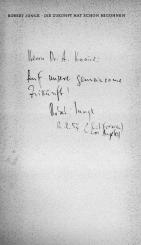 ROBERT JUNGK · DIE ZUKUNFT HAT SCHON BEGONNEN
Herrn Dr. A.
Auf unsere gemeinsame
Zukunft!
Robert Jungk
Los Angeles)